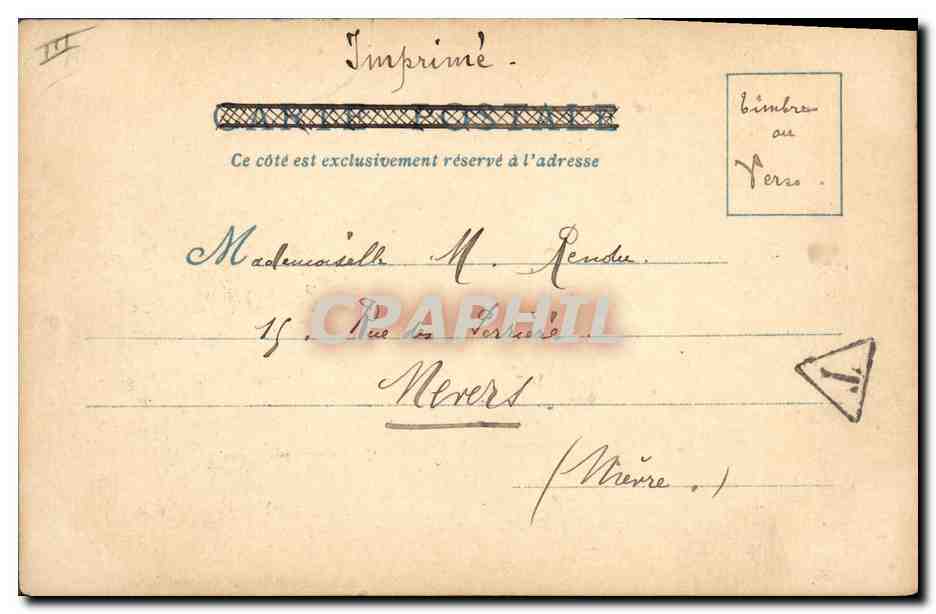 III
Imprimé.
CARTE POSTALE
Ce côté est exclusivement réservé à l'adresse
timbre
au
Verso.
Mademoiselle M. Rendu.
15, Rue des Perrière.
CPAPHIL
Nevers.
T
(Nièvre.)